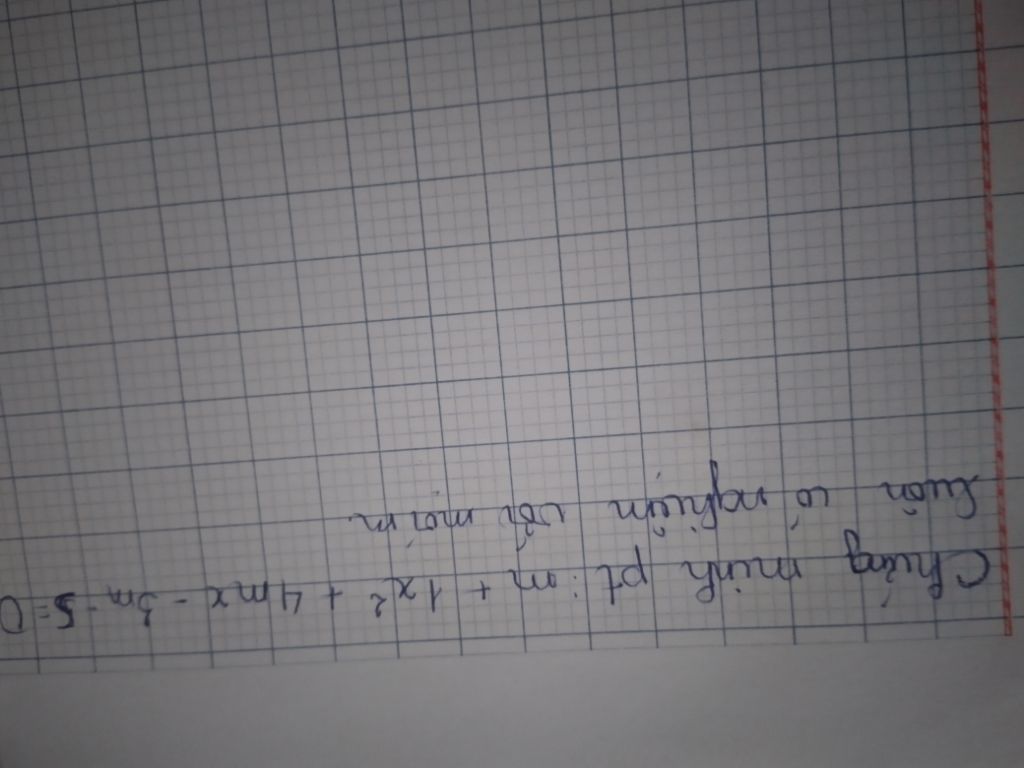 Chứng minh pt: m + 1x² + 4mx - 3m - 5 = 0
luôn có nghiệm với mọi m